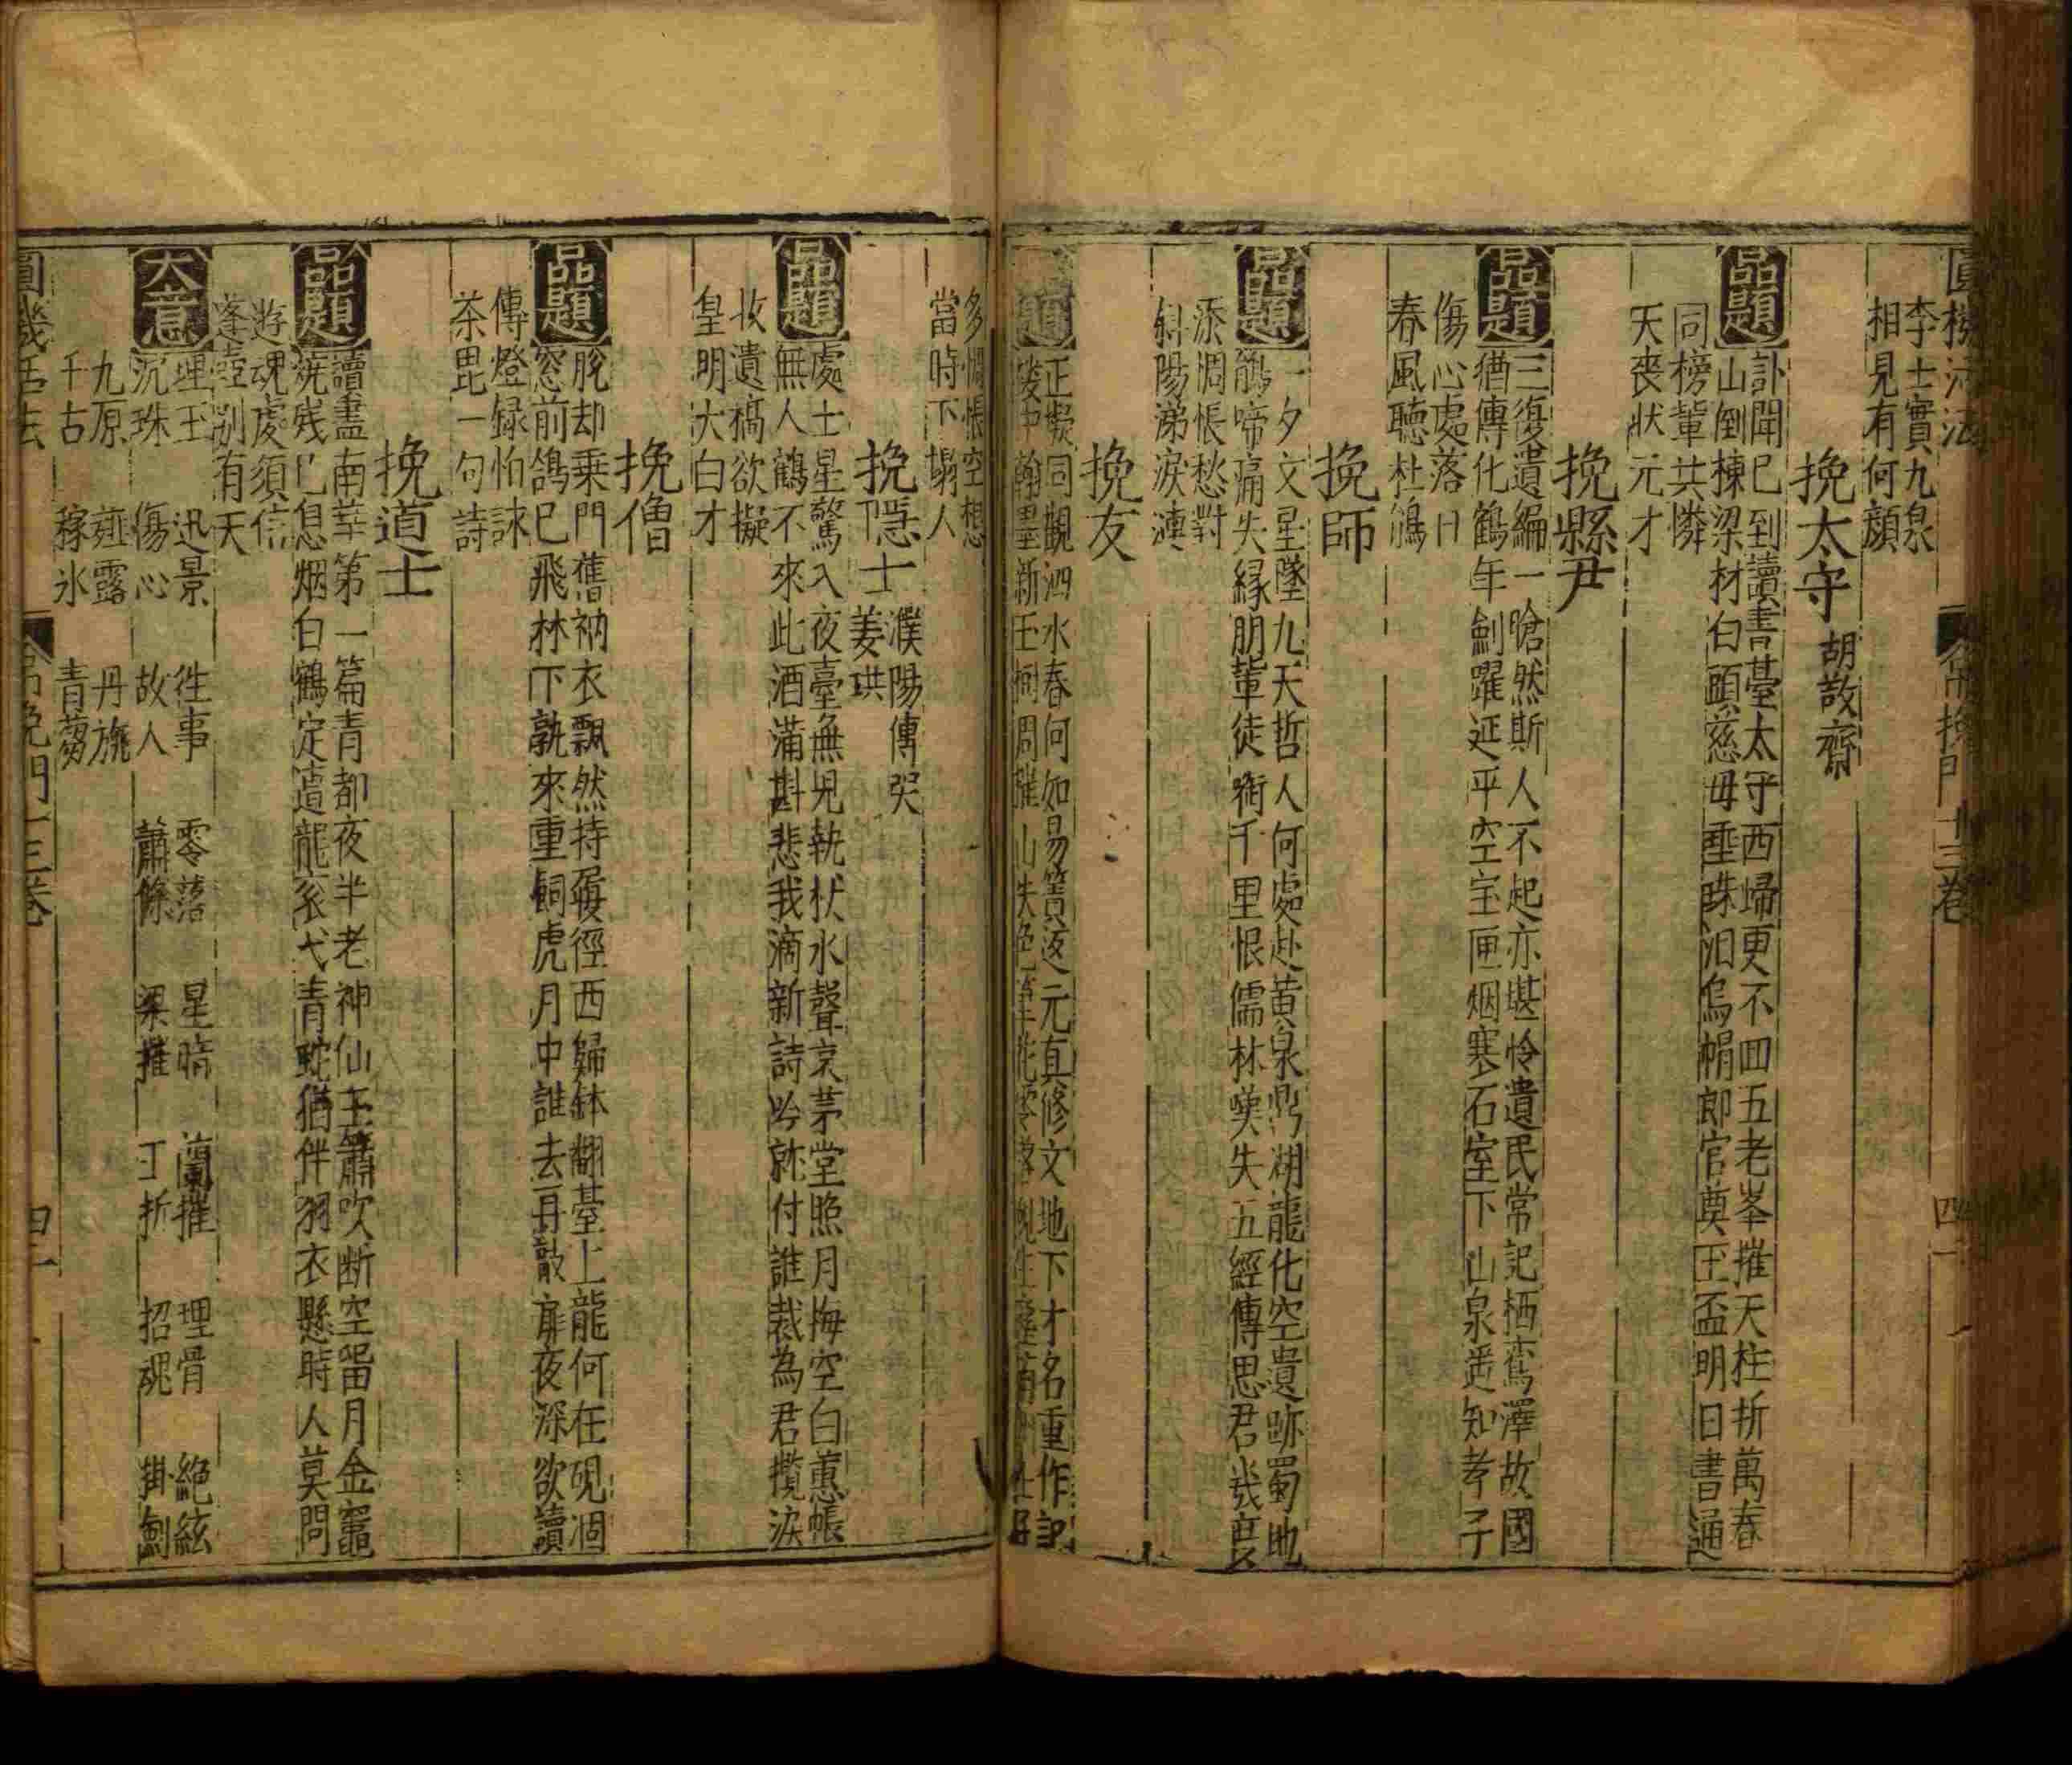 李士實九泉
相見有何顏
挽太守 胡敬齋
品題
訃聞巳到讀書臺太守西歸更不囬五老峯摧天柱折萬春
山倒棟梁材白頭慈母垂珠泪烏帽郎官奠玉盃明日書通
同榜輩共憐
天喪狀元才
挽縣尹
品題
三復遺編一愴然斯人不起亦堪怜遺民常記栖鸞澤故國
猶傳化鶴年劍躍延平空宝匣烟寒石室下山泉遥知孝子
傷心處落日
春風聽杜鵑
挽師
品題
一夕文星墜九天哲人何處赴黄泉鼎湖龍化空遺跡蜀地
鵑啼痛失緣朋輩徒衔千里恨儒林嘆失五經傳思君幾度
添惆悵愁對
斜陽涕淚漣
挽友
題
正擬同觀泗水春何如易簀返元真修文地下才名重作記
樓中翰墨新玉樹凋摧山失色筆花零落
多惆悵空想
當時下榻人
挽隱士 濮陽傳哭姜洪
品題
處士星驚入夜臺無児執杖水聲哀茅堂照月梅空白蕙帳
無人鶴不來此酒滿斟悲我滴新詩吟就付誰裁為君攬淚
收遺槁欲擬
皇明大白才
挽僧
品題
脫却乗門舊衲衣飄然持履徑西歸鉢翻臺上龍何在硯凅
窓前鴿巳飛林下孰來重飼虎月中誰去再敲扉夜深欲讀
傳燈録怕誄
茶毘一句詩
挽道士
品題
讀盡南華第一篇青都夜半老神仙玉簫吹断空留月金竈
燒残巳息烟白鶴定遺龍衮弋青蛇猶伴羽衣懸時人莫問
遊魂處須信
蓬壺別有天
大意
埋玉 迅景 徃事 零落 星暗 蘭摧 埋骨 絶絃
沉珠 傷心 故人 蕭條 梁摧 丁折 招魂 掛劍
九原 薤露 丹旐
千古 稼氷 青蒭
圓機活法 吊挽門十三卷 四一